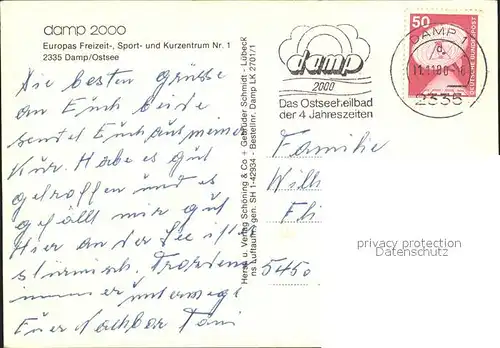 damp 2000
Europas Freizeit-, Sport- und Kurzentrum Nr. 1
2335 Damp/Ostsee
Die besten Grüsse
an Euch beide
sendet Euch aus meiner
Kur. Habe es gut
getroffen und es
gefällt mir gut
Hier an der See ist's
stürmisch. Trotzdem
immer unterwegs
Euer Nachbar Toni
Herst. u. Verlag Schöning & Co + Gebrüder Schmidt · Lübeck
ns Luftaufn. gen: SH 1-42934 - Bestellnr. Damp LK 2701/1
damp
2000
Das Ostseeheilbad
der 4 Jahreszeiten
50
DEUTSCHE BUNDESPOST
DAMP 1
2335
Familie
Willi
5450
privacy protection
Datenschutz